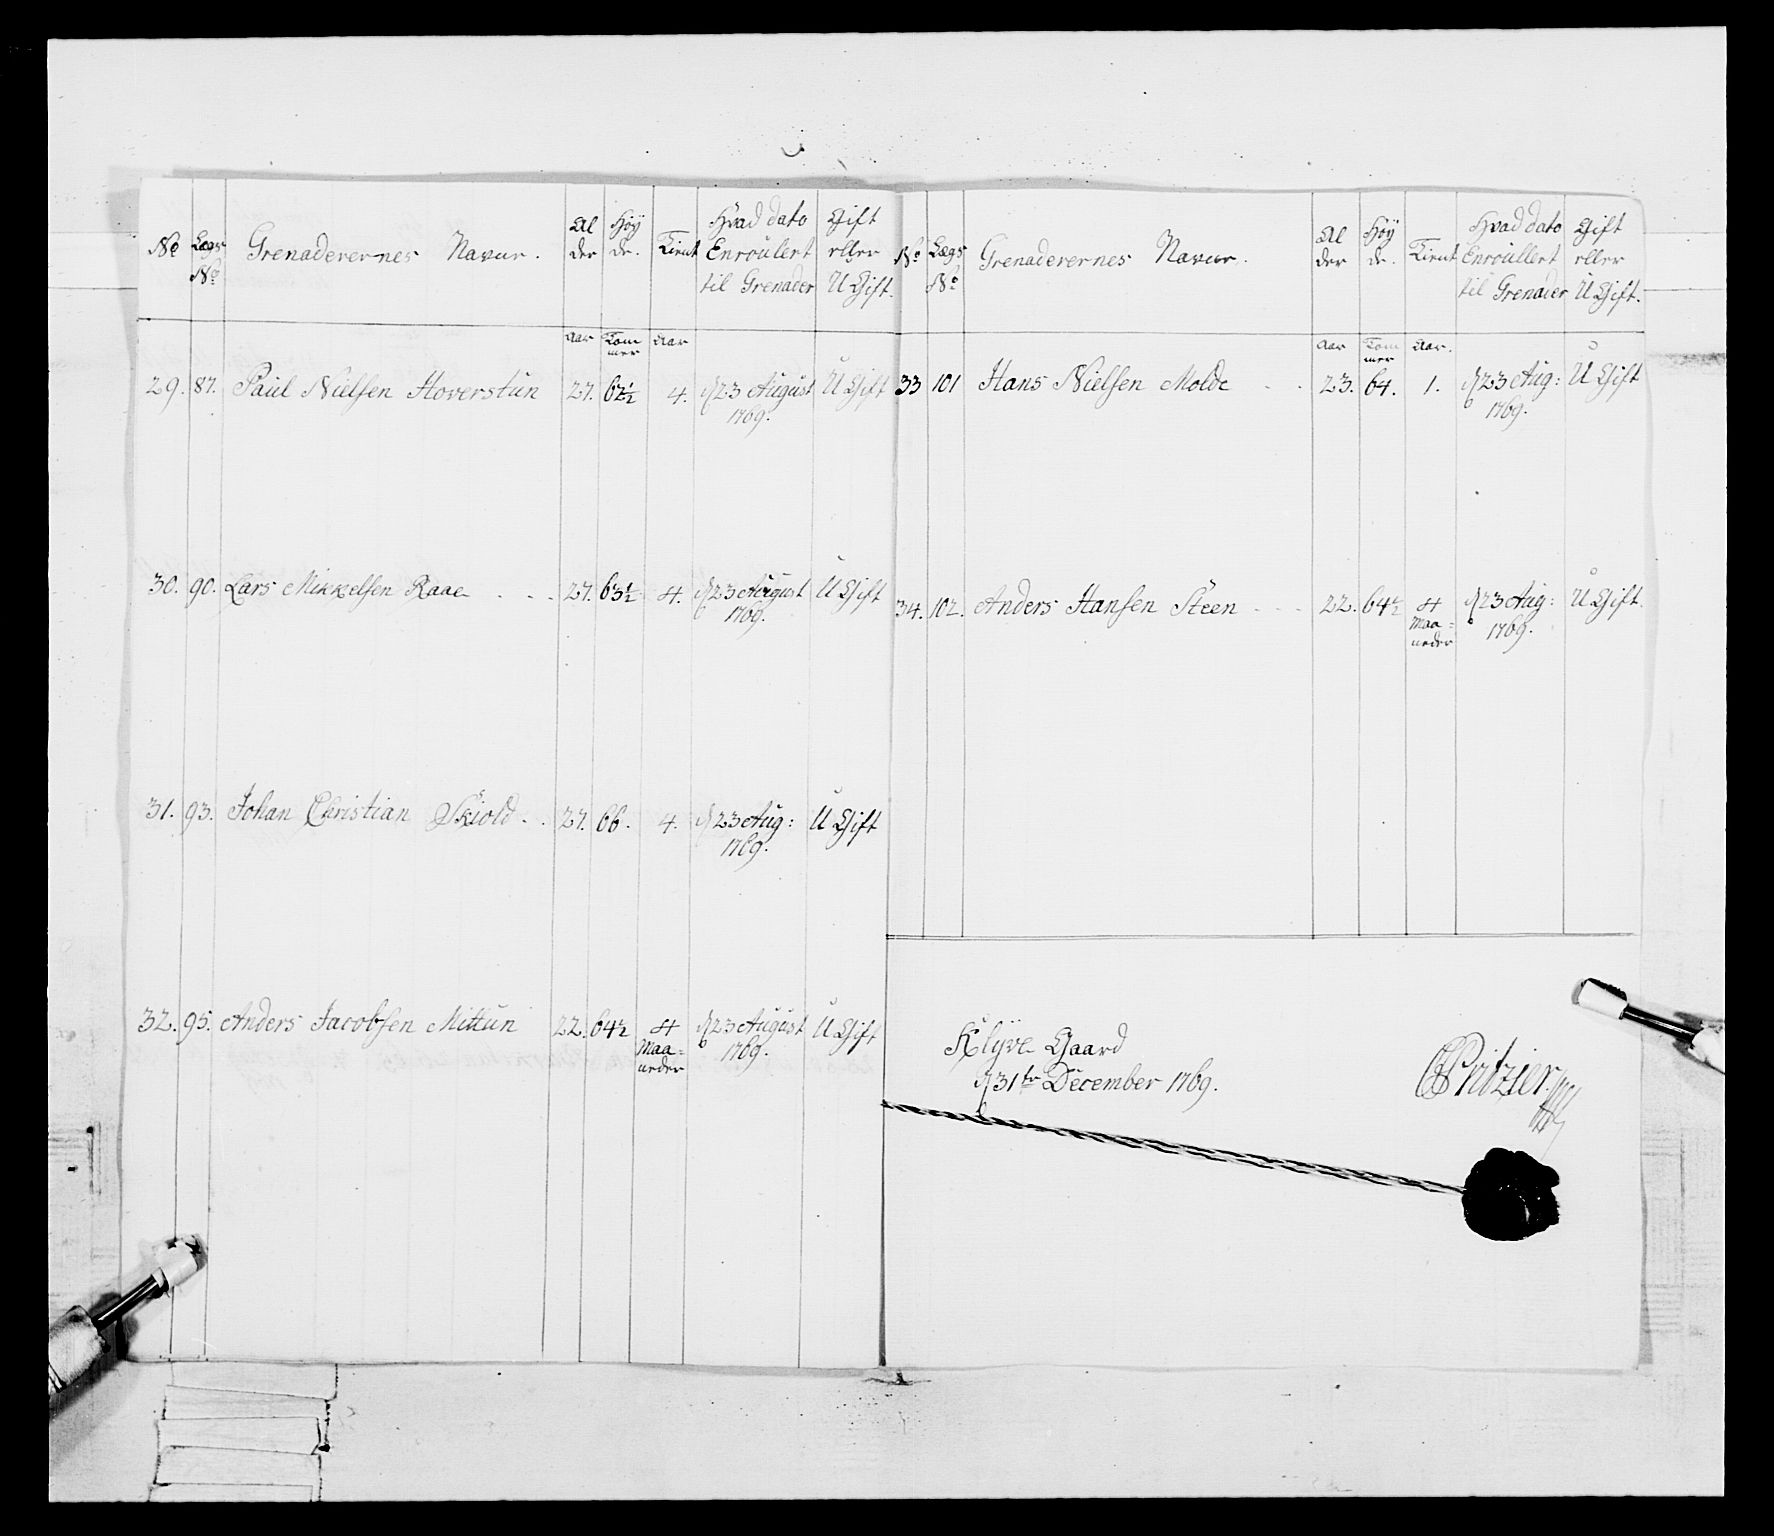 No Lægs No Grenaderernes Navne. Al der Høÿ de. Tient Hvad dato Enroulert til Grenader Gift eller U Gift.
Aar Tom mer Aar
29. 87. Paul Nielsen Hoverstun 27. 62½ 4. d 23 August 1769. U Gift
30. 90. Lars Mikkelsen Raae 27. 63½ 4. d 23 August 1769. U Gift
31. 93. Johan Christian Skiold 27. 66. 4. d 23 Aug: 1769. U Gift
32. 95. Anders Jacobsen Mittun 22. 64½ 4 Maa= neder d 23 August 1769. U Gift
No Lægs No Grenaderernes Navne. Al der Høÿ de. Tient Hvad dato Enroullert til Grenader Gift eller U Gift.
Aar Tom mer Aar.
33 101 Hans Nielsen Molde 23. 64. 1. d 23 Aug: 1769. U Gift
34. 102. Anders Hansen Steen 22. 64½ 4 Maa= neder d 23 Aug: 1769. U Gift.
Klÿve Gaard
d 31te December 1769.